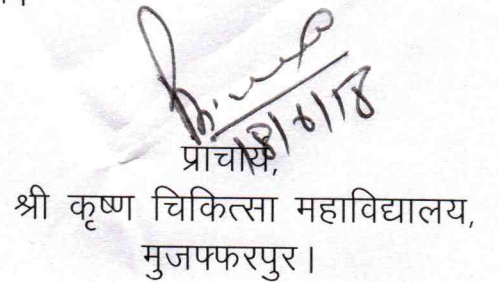 18/6/18
प्राचार्य,
श्री कृष्ण चिकित्सा महाविद्यालय,
मुजफ्फरपुर।